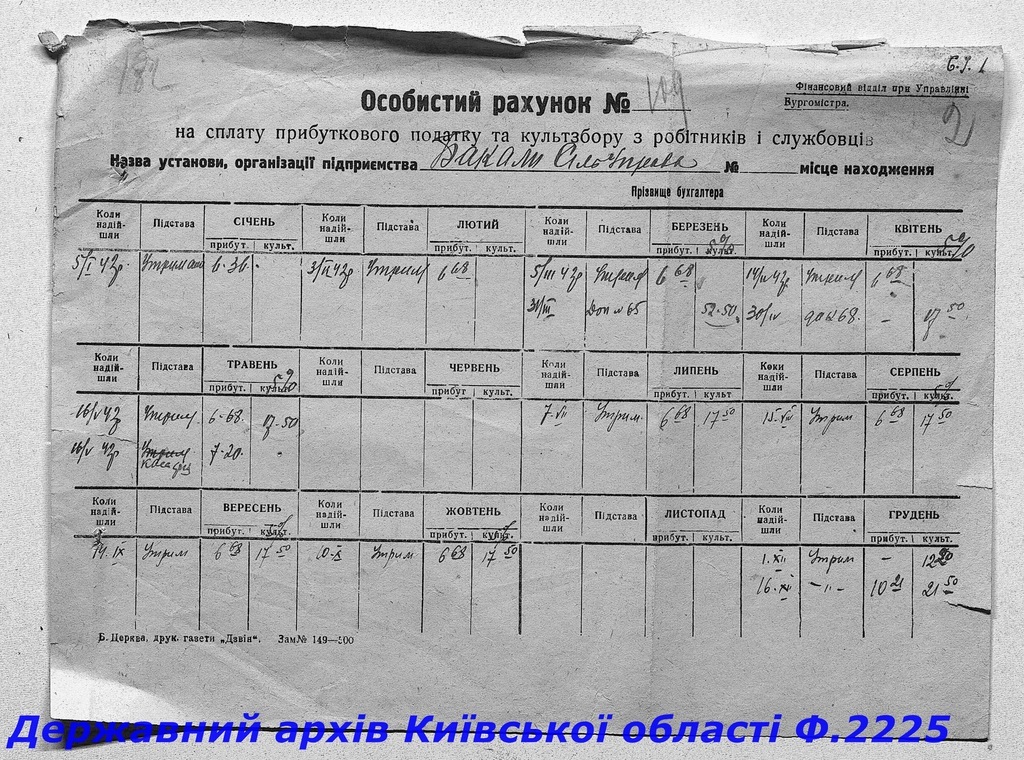 182
6.I.1
Фінансовий відділ при Управлінні
Бургомістра.
2
Особистий рахунок № 119
на сплату прибуткового податку та культзбору з робітників і службовців
Назва установи, організації підприємства Бакали Сільуправа № місце находження
Прізвище бухгалтера
Коли надій-шли Підстава СІЧЕНЬ прибут. культ. Коли надій-шли Підстава ЛЮТИЙ прибут. культ. Коли надій-шли Підстава БЕРЕЗЕНЬ прибут. культ. 5% Коли надій-шли Підстава КВІТЕНЬ прибут. культ. 5%
5/I 42р. 6.36. 3/II 42р Утрим 6 68 5/III 42р Утрим 6 68 14/IV 42р Утрим 6 68
31/III Доп №65 52-50. 30/IV 68. – 17 50
Коли надій-шли Підстава ТРАВЕНЬ прибут. культ. 5% Коли надій-шли Підстава ЧЕРВЕНЬ прибут. культ. Коли надій-шли Підстава ЛИПЕНЬ прибут. культ Коли надій-шли Підстава СЕРПЕНЬ прибут. культ. 5%
16/V 42р Утрим 6-68. 17-50 7.VII Утрим. 6 68 17 50 15.VII Утрим 6 68 17 50
16/V 42р Утрим 7-20.
Коли надій-шли Підстава ВЕРЕСЕНЬ прибут. культ. Коли надій-шли Підстава ЖОВТЕНЬ прибут. культ. Коли надій-шли Підстава ЛИСТОПАД прибут. культ. Коли надій-шли Підстава ГРУДЕНЬ прибут. культ.
14.IX Утрим 6 68 17 50 10.X Утрим 6 68 17 50 1.XII Утрим –
16.XII –"– 10 21 21 50
Б. Церква, друк. газети „Дзвін“. Зам№ 149—500
Державний архів Київської області Ф.2225